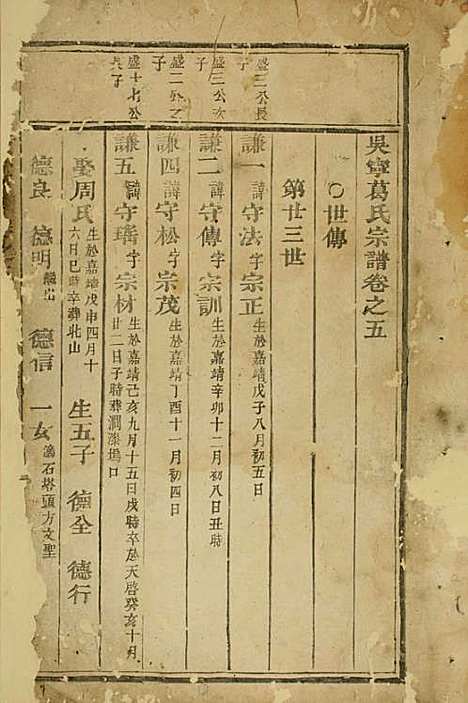 吳寧葛氏宗譜卷之五
○世傳
第廿三世
盛三公長子
謙一 諱守法字宗正 生於嘉靖戊子八月初五日
盛三公次子
謙二 諱守傳字宗訓 生於嘉靖辛卯十二月初八日丑時
盛二公之子
謙四 諱守松字宗茂 生於嘉靖丁酉十一月初四日
盛十七公長子
謙五 諱守瑀字宗材 生於嘉靖己亥九月十五日戌時卒於天啓癸亥十月廿二日子時葬澗漆塢口
娶周氏 生於嘉靖戊申四月十六日巳時辛葬北山 生五子 德全 德行
德良 德明 繼出 德信 一女 適石塔頭方文聖